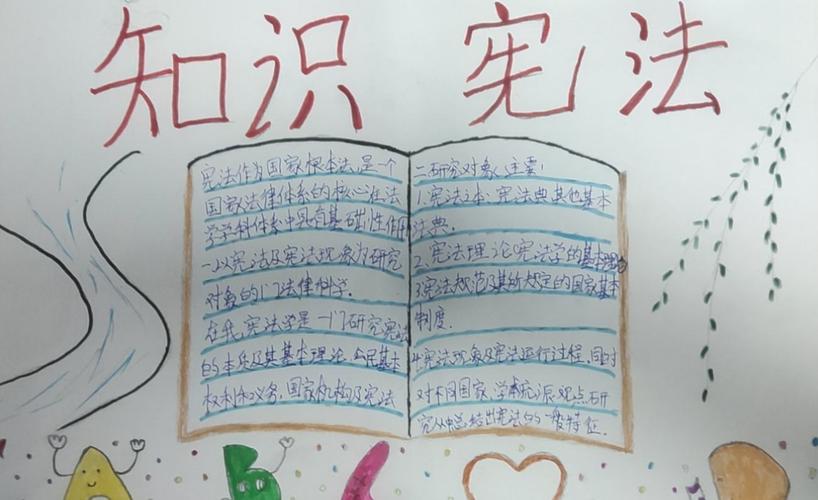 知识 宪法
宪法作为国家根本法,是一个
国家法律体系的核心在法
学学科体系中具有基础性作用
一以宪法及宪法现象为研究
对象的门法律科学.
在我,宪法学是一门研究宪法
的本质及其基本理论,公民基本
权利和义务,国家机构及宪法
二研究对象、主要:
1.宪法文本:宪法典其他基本
法典.
2.宪法理论宪法学的基本理论
3宪法规范及其所规定的国家基本
制度.
4宪法现象及宪法运行过程,同时
对不同国家,学术流派观点研
究从中总结出宪法的一般特征.